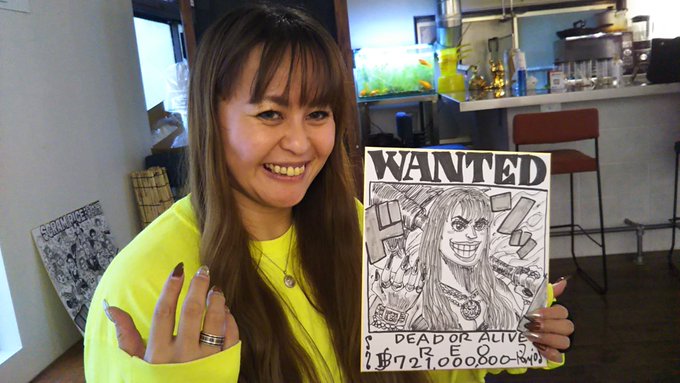 WANTED
DEAD OR ALIVE
REO
฿721,000,000-